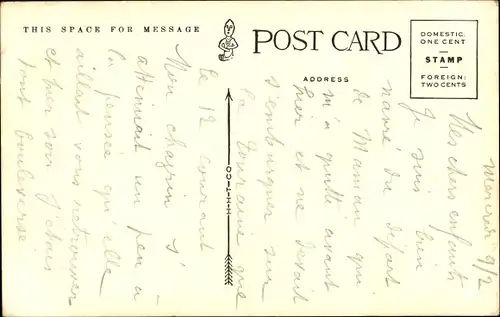 THIS SPACE FOR MESSAGE
POST CARD
ADDRESS
DOMESTIC:
ONE CENT
STAMP
FOREIGN:
TWO CENTS
O-C-T-H-H
Mercredi 9/2
Mes chers enfants
Je suis bien
navré du départ
de Maman qui
m'a quitté avant
hier et ne devait
s'embarquer sur
la Touraine que
le 12 courant
Mon chagrin s'
atténuait un peu à
la pensée qu'elle
allait vous retrouver
et hier soir j'étais
tout bouleversé